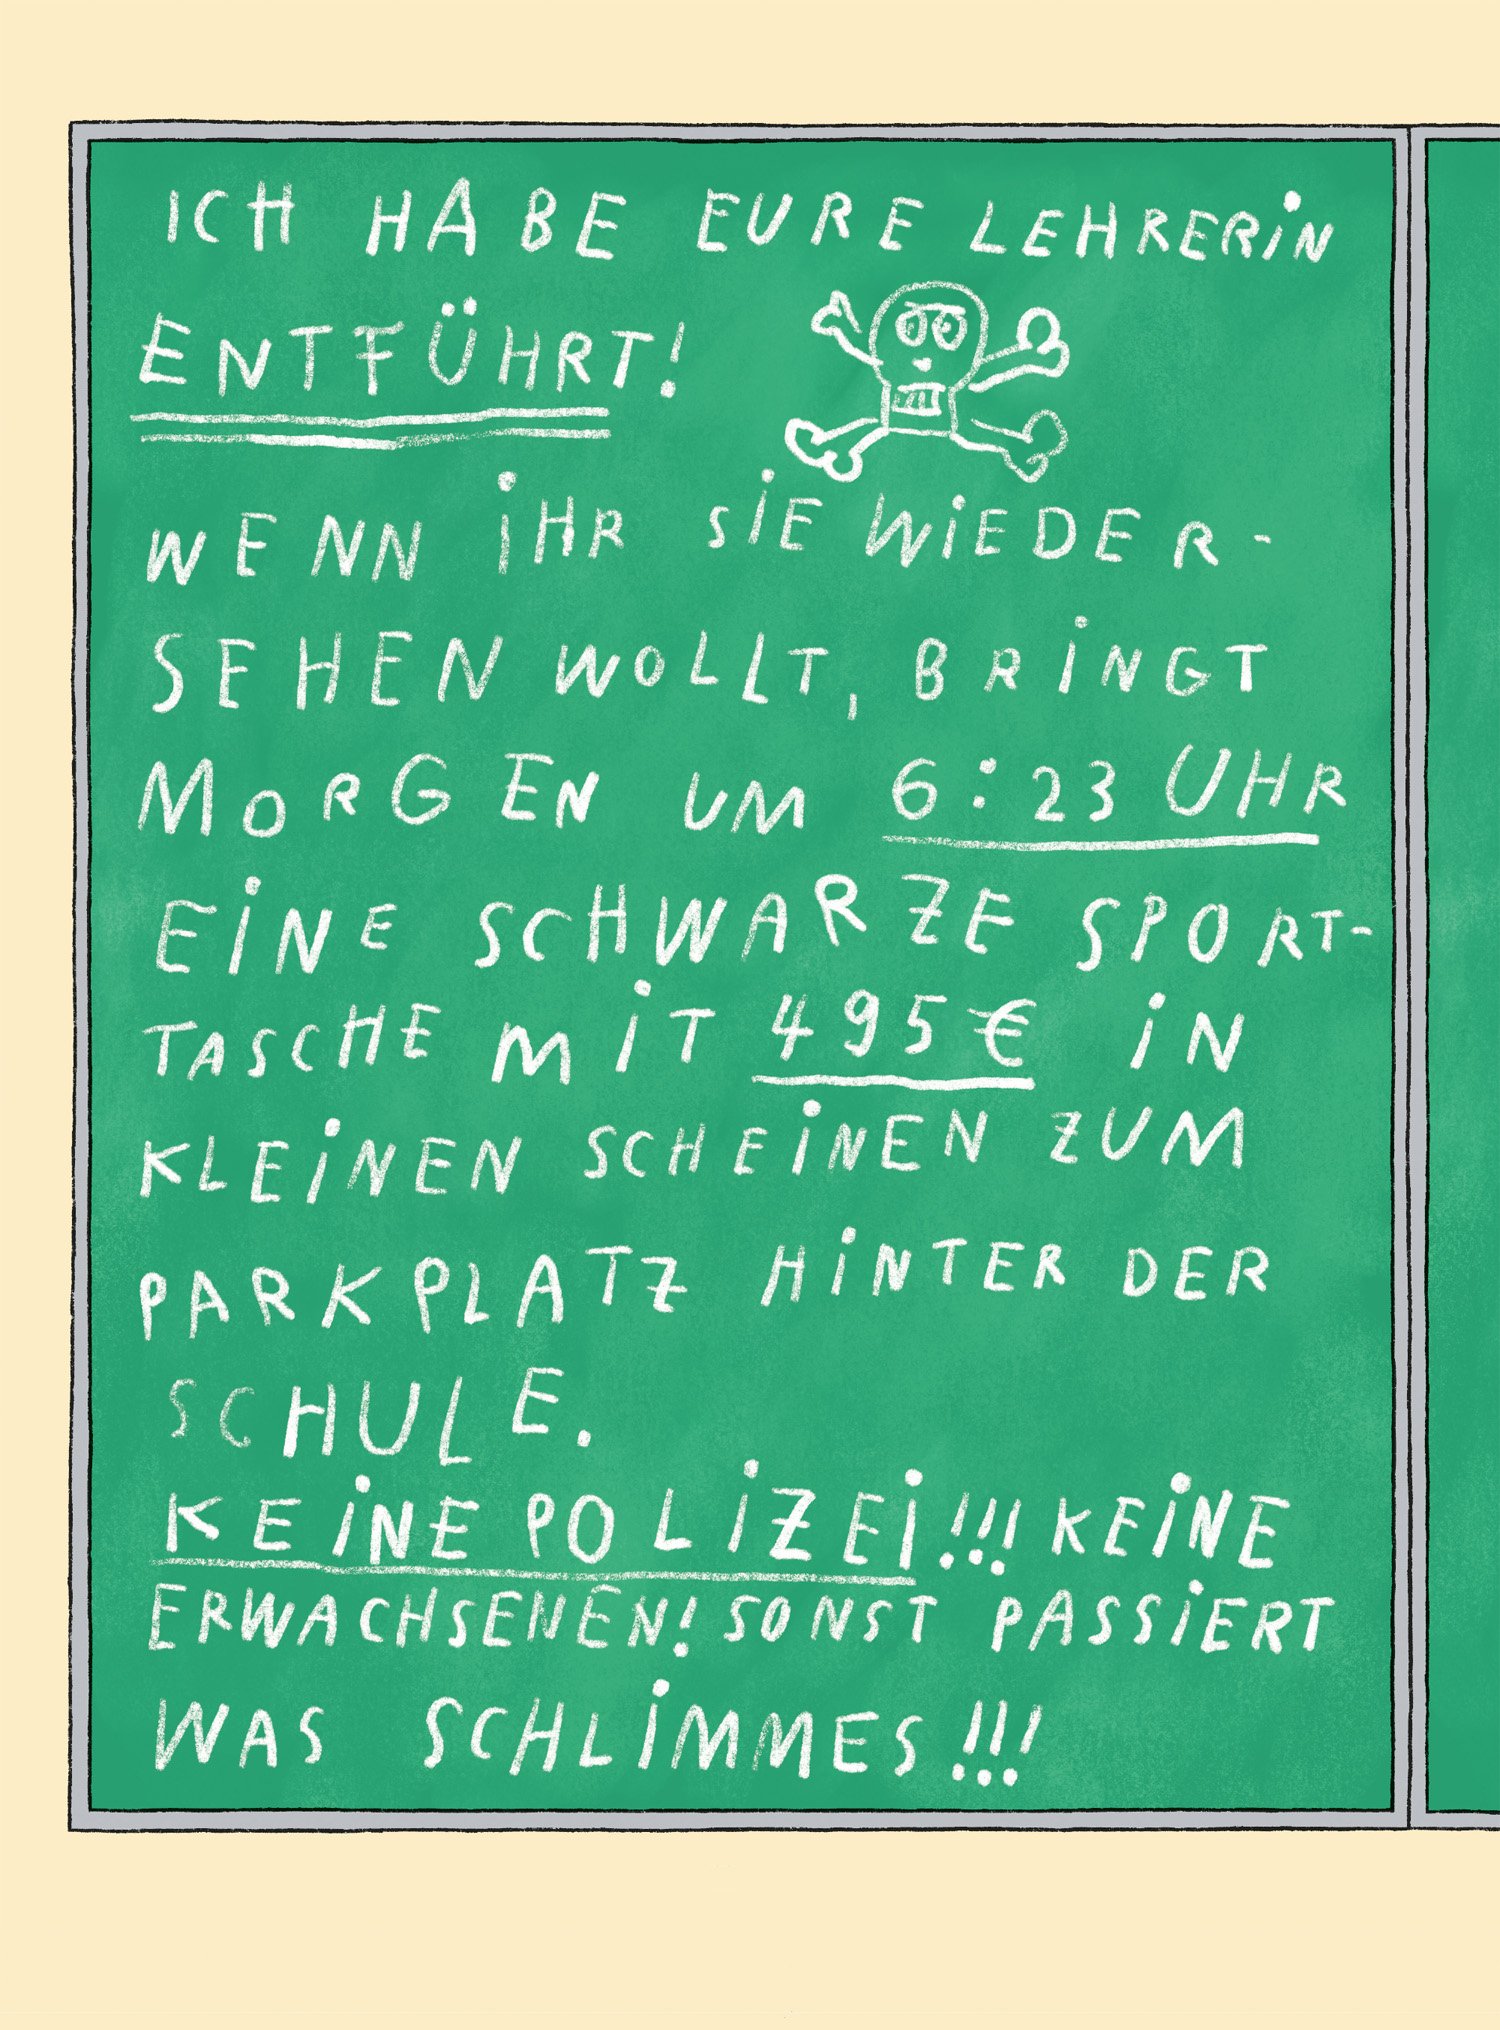 ICH HABE EURE LEHRERIN
ENTFÜHRT!
WENN IHR SIE WIEDER-
SEHEN WOLLT, BRINGT
MORGEN UM 6:23 UHR
EINE SCHWARZE SPORT-
TASCHE MIT 495€ IN
KLEINEN SCHEINEN ZUM
PARKPLATZ HINTER DER
SCHULE.
KEINE POLIZEI!!! KEINE
ERWACHSENEN! SONST PASSIERT
WAS SCHLIMMES!!!